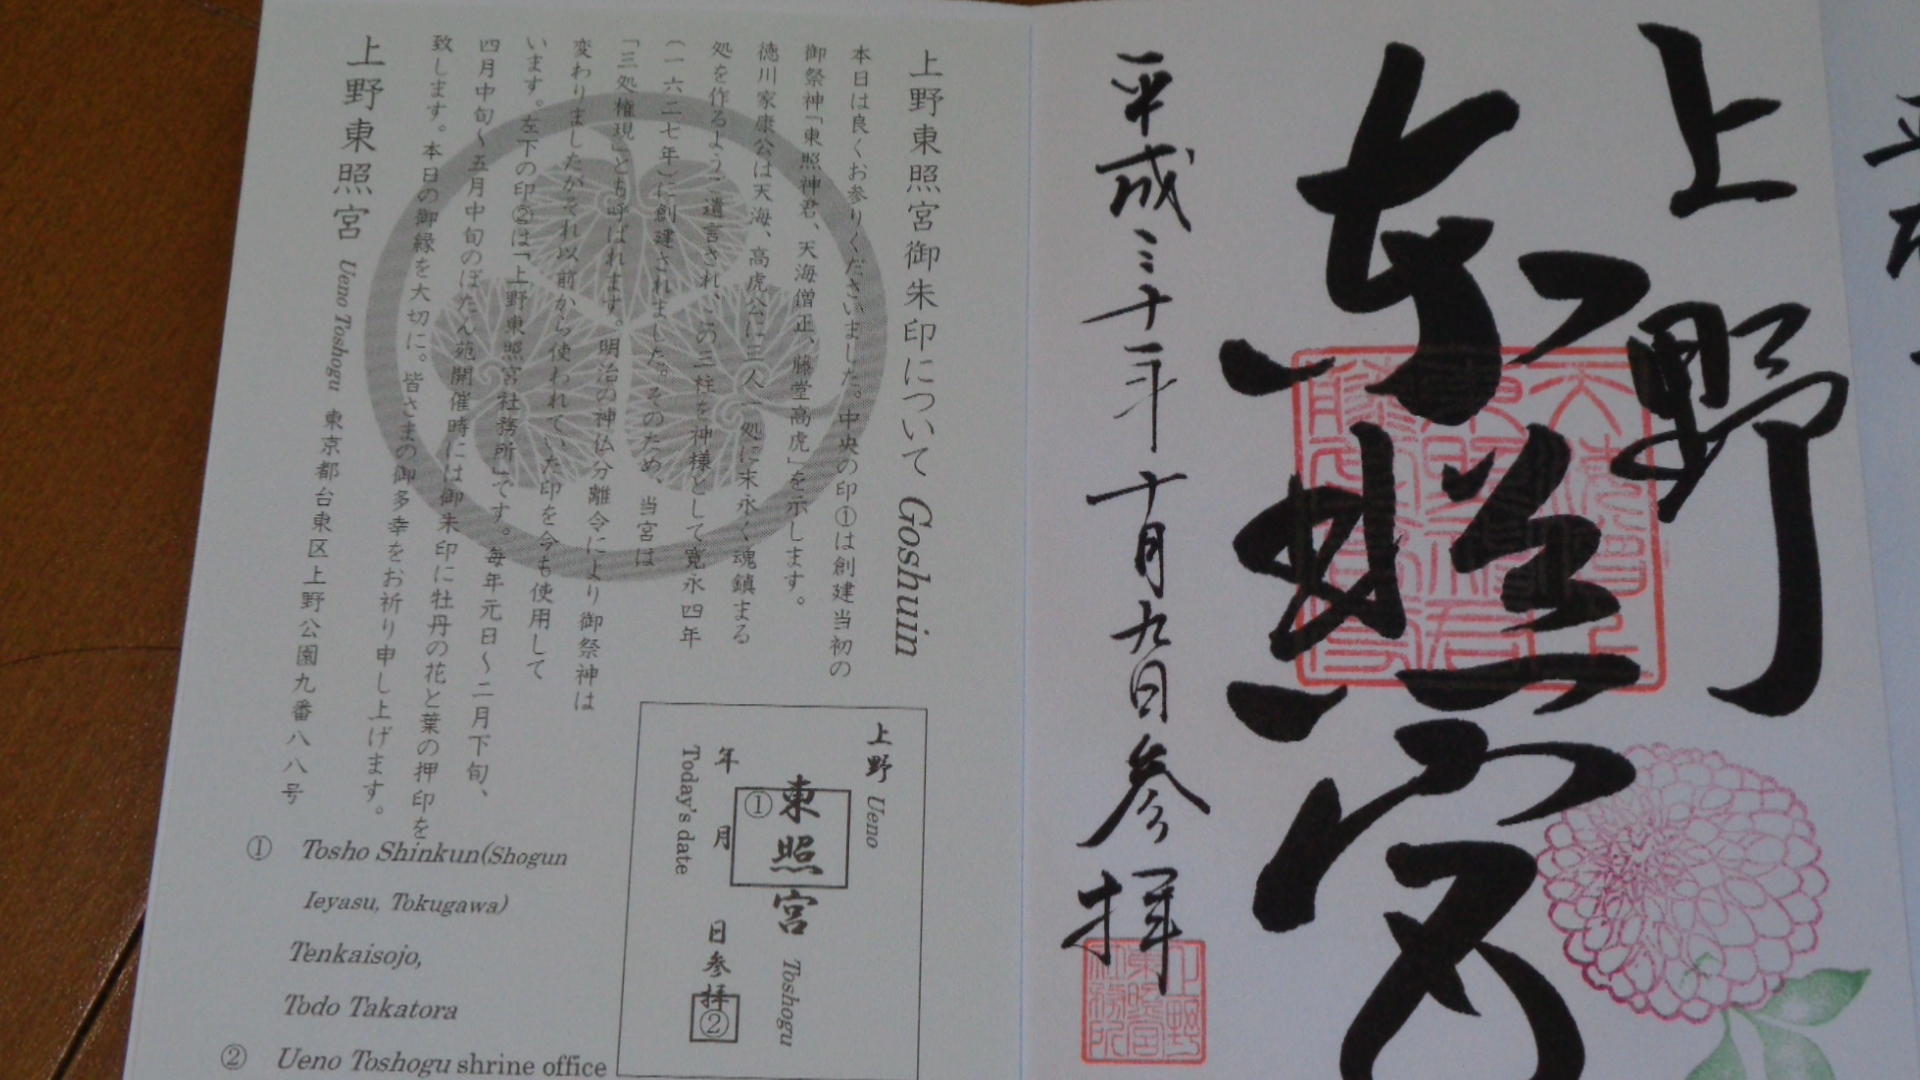 上野
東照宮
平成三十一年十月九日参拝
上野東照宮御朱印について Goshuin
本日は良くお参りくださいました。中央の印①は創建当初の
御祭神「東照神君、天海僧正、藤堂高虎」を示します。
徳川家康公は天海、高虎公に三人一処に末永く魂鎮まる
処を作るようご遺言され、この三柱を神様として寛永四年
(一六二七年)に創建されました。そのため、当宮は
「三処権現」とも呼ばれます。明治の神仏分離令により御祭神は
変わりましたがそれ以前から使われていた印を今も使用して
います。左下の印②は「上野東照宮社務所」です。毎年元日~二月下旬、
四月中旬~五月中旬のぼたん苑開催時には御朱印に牡丹の花と葉の押印を
致します。本日の御縁を大切に。皆さまの御多幸をお祈り申し上げます。
上野東照宮 Ueno Toshogu 東京都台東区上野公園九番八八号
上野 Ueno
①東照宮 Toshogu
年 月 日参拝②
Today's date
① Tosho Shinkun(Shogun
Ieyasu, Tokugawa)
Tenkaisojo,
Todo Takatora
② Ueno Toshogu shrine office
上野
東照宮
社務所